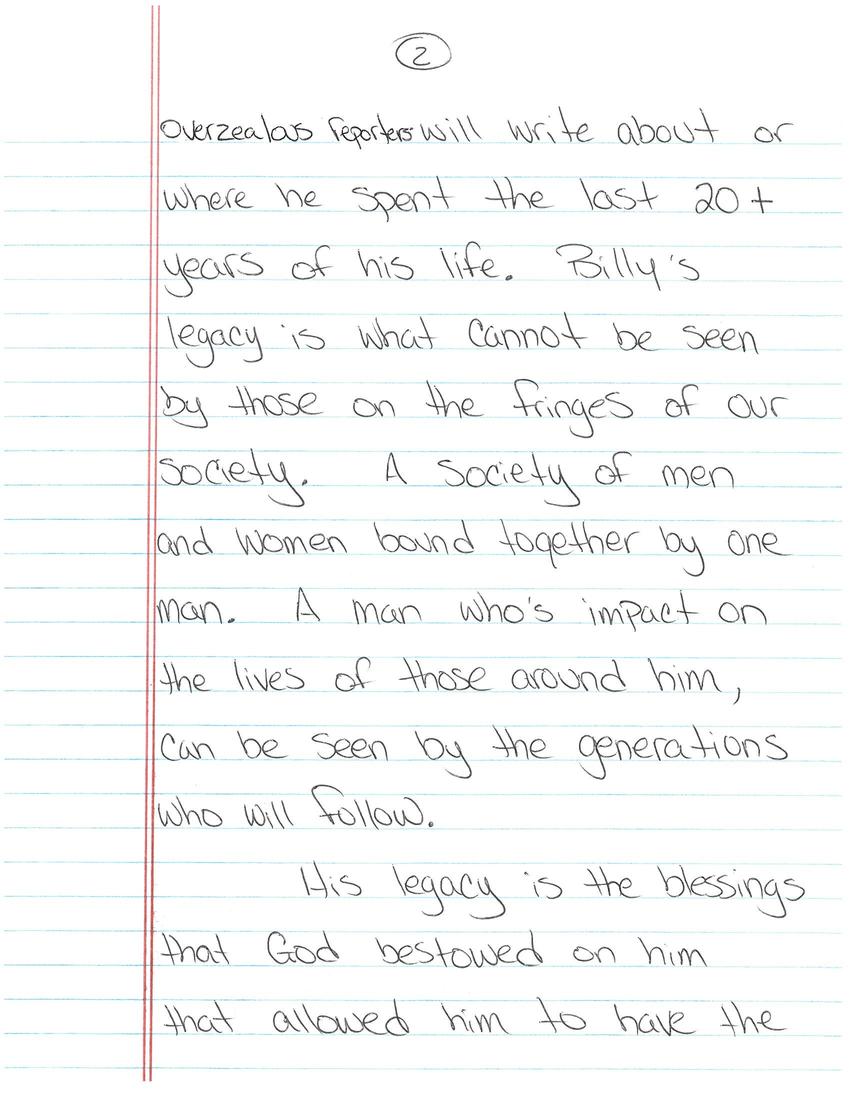 2
Overzealous reporters will write about or
where he spent the last 20+
years of his life. Billy's
legacy is what cannot be seen
by those on the fringes of our
society. A society of men
and women bound together by one
man. A man who's impact on
the lives of those around him,
can be seen by the generations
who will follow.
His legacy is the blessings
that God bestowed on him
that allowed him to have the